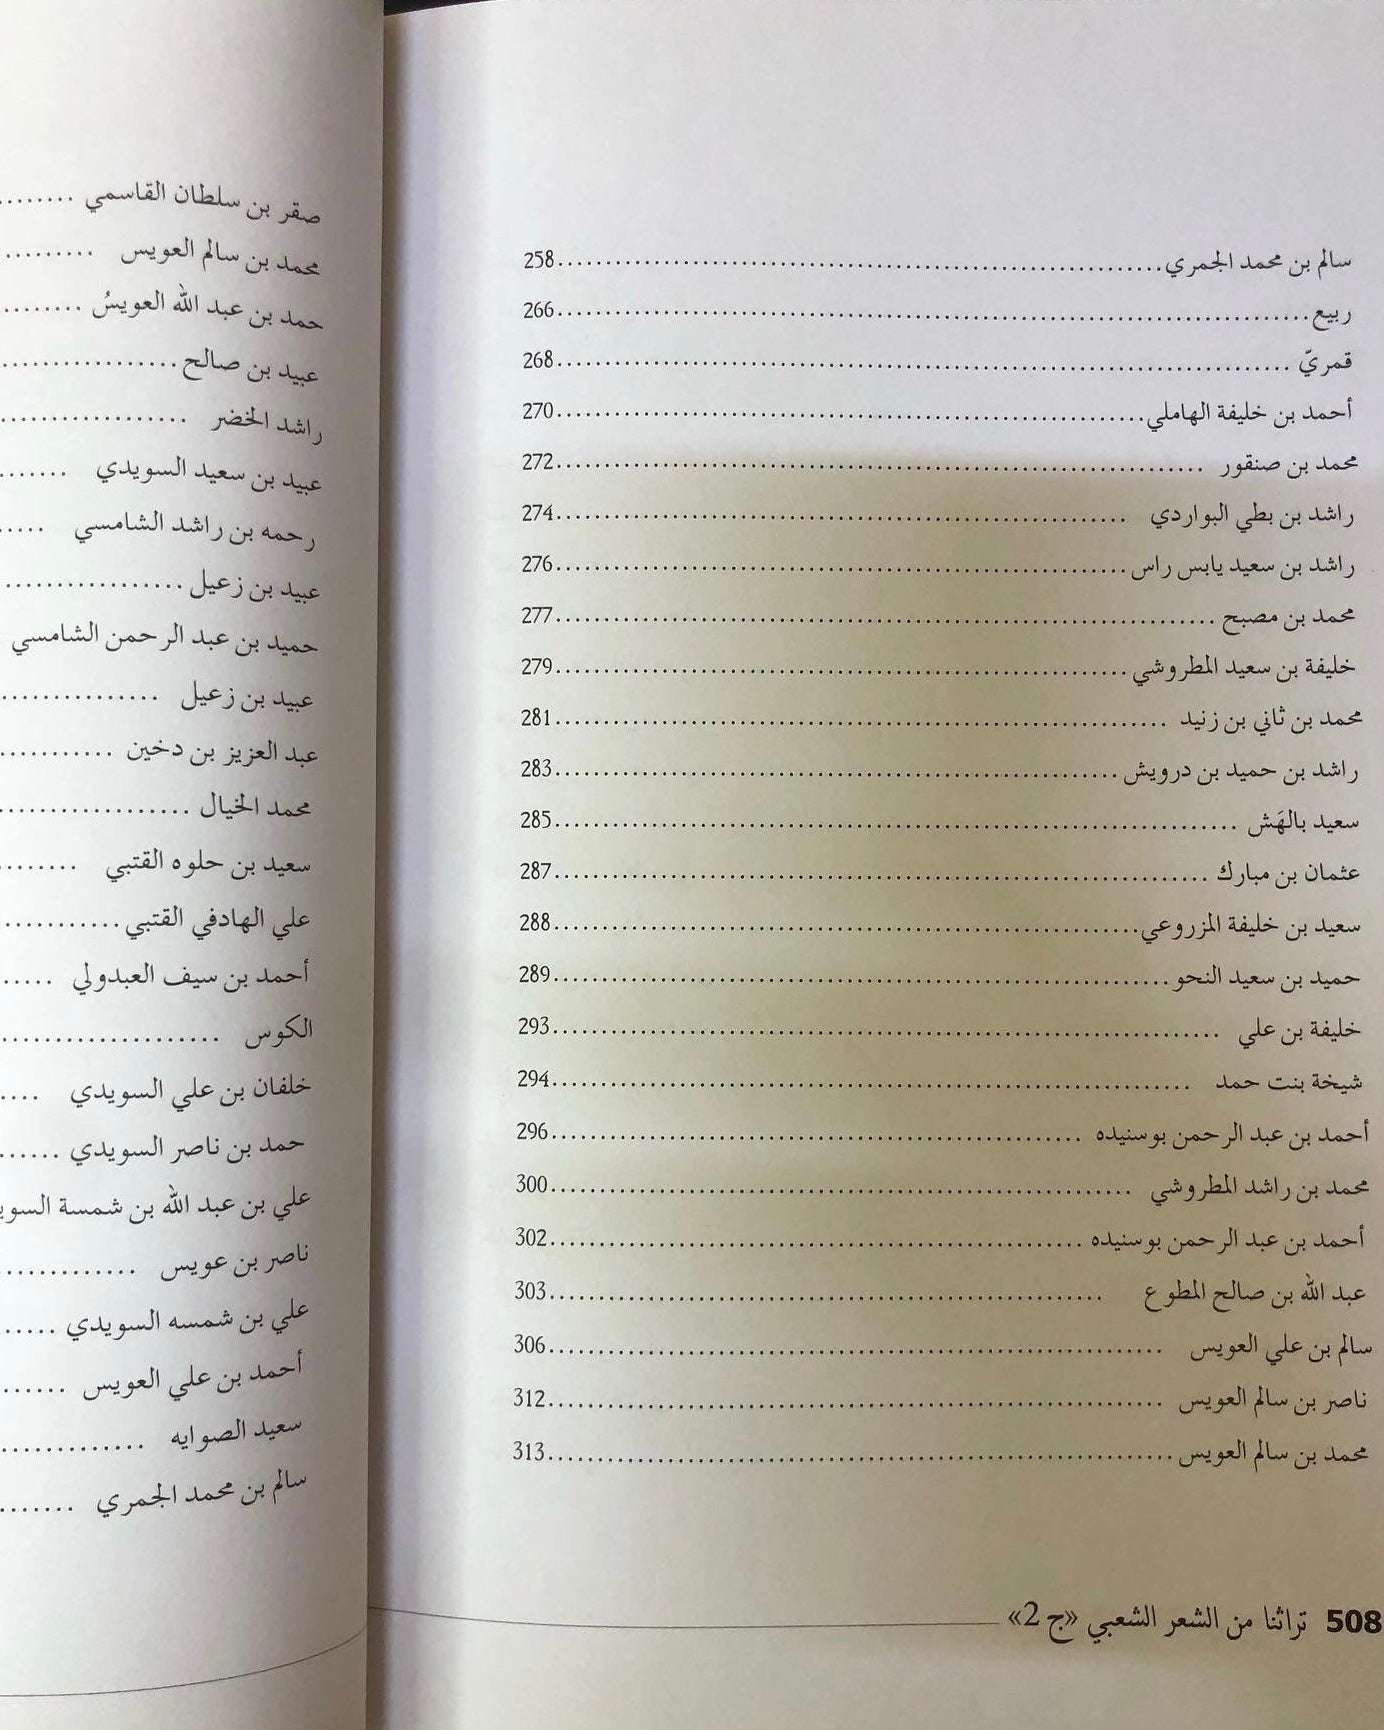 سالم بن محمد الجمري............258
ربيع............266
قمريّ............268
أحمد بن خليفة الهاملي............270
محمد بن صنقور............272
راشد بن بطي البواردي............274
راشد بن سعيد يابس راس............276
محمد بن مصبح............277
خليفة بن سعيد المطروشي............279
محمد بن ثاني بن زنيد............281
راشد بن حميد بن درويش............283
سعيد بالهَش............285
عثمان بن مبارك............287
سعيد بن خليفة المزروعي............288
حميد بن سعيد النحو............289
خليفة بن علي............293
شيخة بنت حمد............294
أحمد بن عبد الرحمن بوسنيده............296
محمد بن راشد المطروشي............300
أحمد بن عبد الرحمن بوسنيده............302
عبد الله بن صالح المطوع............303
سالم بن علي العويس............306
ناصر بن سالم العويس............312
محمد بن سالم العويس............313
508 تراثنا من الشعر الشعبي «ج 2»
صقر بن سلطان القاسمي ........
محمد بن سالم العويس ........
حمد بن عبد الله العويسُ ........
عبيد بن صالح ........
راشد الخضر ........
عبيد بن سعيد السويدي ......
رحمه بن راشد الشامسي .....
عبيد بن زعيل ........
حميد بن عبد الرحمن الشامسي
عبيد بن زعيل ........
عبد العزيز بن دخين ........
محمد الخيال ........
سعيد بن حلوه القتبي ......
علي الهادفي القتبي ........
أحمد بن سيف العبدولي .....
الكوس ........
خلفان بن علي السويدي ....
حمد بن ناصر السويدي ......
علي بن عبد الله بن شمسة
ناصر بن عويس ........
علي بن شمسه السويدي .....
أحمد بن علي العويس ......
سعيد الصوايه ........
سالم بن محمد الجمري .......